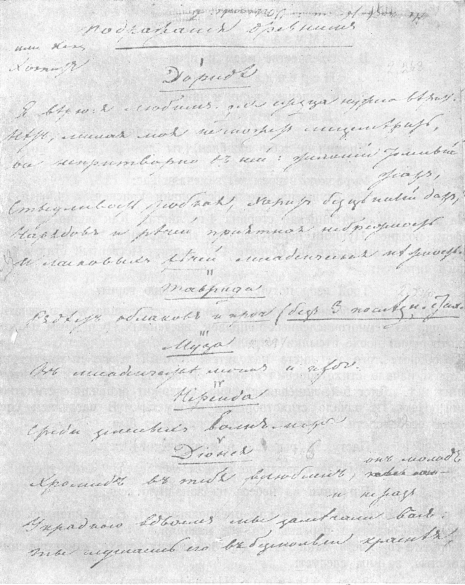 Подражания древним
или как
I
Доридѣ
Я вѣрю: я любимъ; для сердца нужно вѣрить.
Нѣтъ, милая моя не можетъ лицемѣрить;
Все непритворно въ ней: желаній томный
жаръ,
Стыдливость робкая, Харитъ безцѣнный даръ,
Нарядовъ и рѣчей пріятная небрежность
И ласковыхъ именъ младенческая нѣжность.
II
Таврида
Рѣдѣетъ облаковъ и проч (без 3 последних
III
Муза
Въ младенчествѣ моемъ и проч.
IV
Нереида
Среди зеленыхъ волнъ
V
Діонея
Хромидъ въ тебя влюбленъ; онъ молодъ
и не разъ
Украдкою вдвоемъ мы замѣчали васъ;
Ты слушаешь его въ безмолвіи краснѣя;